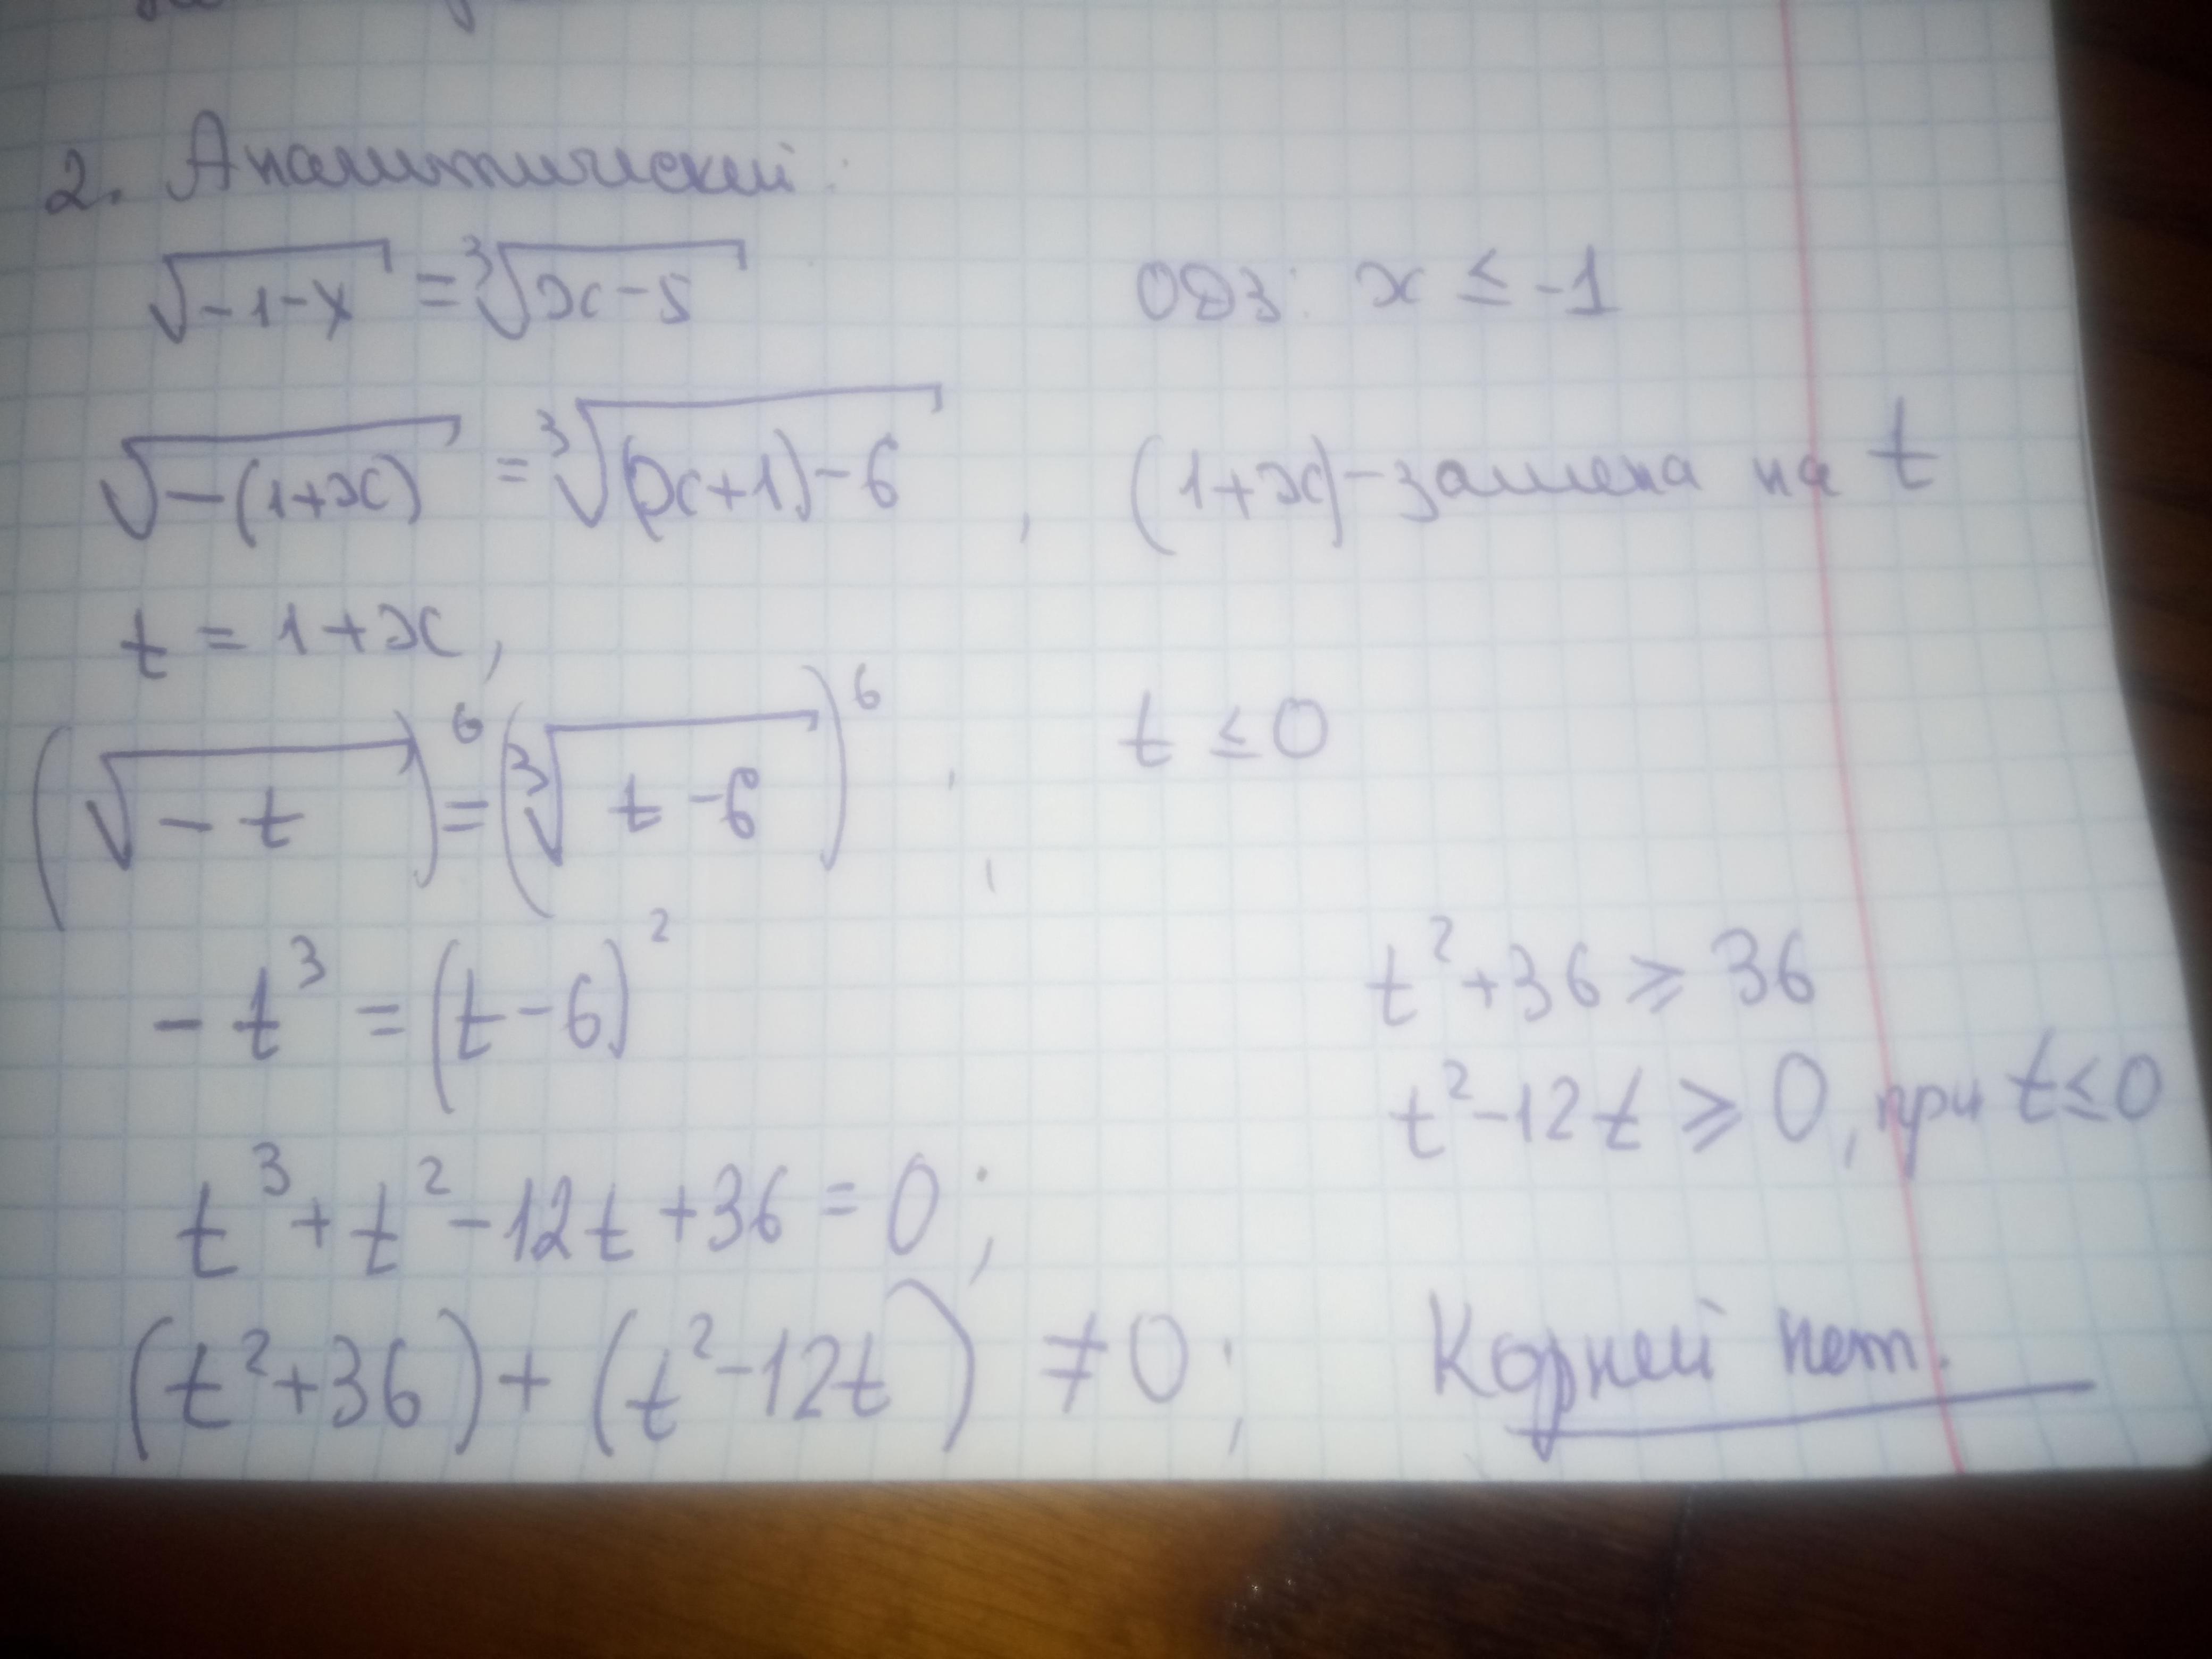 2. Аналитический:
√(-1-x) = ³√(x-5) ОДЗ: x ≤ -1
√(-(1+x)) = ³√((x+1)-6) , (1+x)-замена на t
t = 1+x,
(√(-t))⁶ = (³√(t-6))⁶ , t ≤ 0
-t³ = (t-6)²
t² + 36 ≥ 36
t² - 12t ≥ 0, при t ≤ 0
t³ + t² - 12t + 36 = 0;
(t² + 36) + (t² - 12t) ≠ 0; Корней нет.